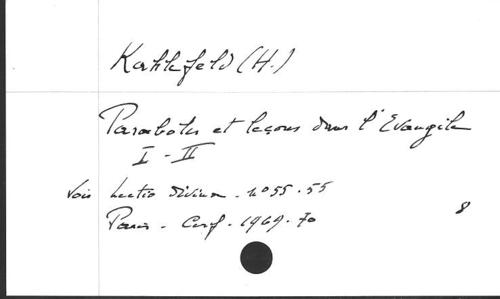 Kahlefeld (H.)
Paraboles et leçons dans l'Evangile
I - II
Voir Lectio divina. n° 55. 55
Paris - Cerf. 1969. 70
8